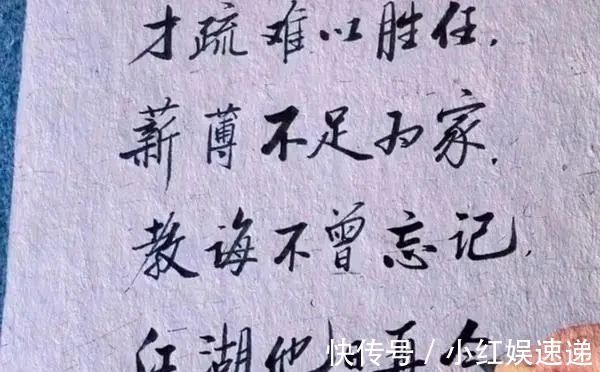 才疏难以胜任.
薪薄不足为家.
教诲不曾忘记.
江湖他 再
快传号 / 小红娱速递